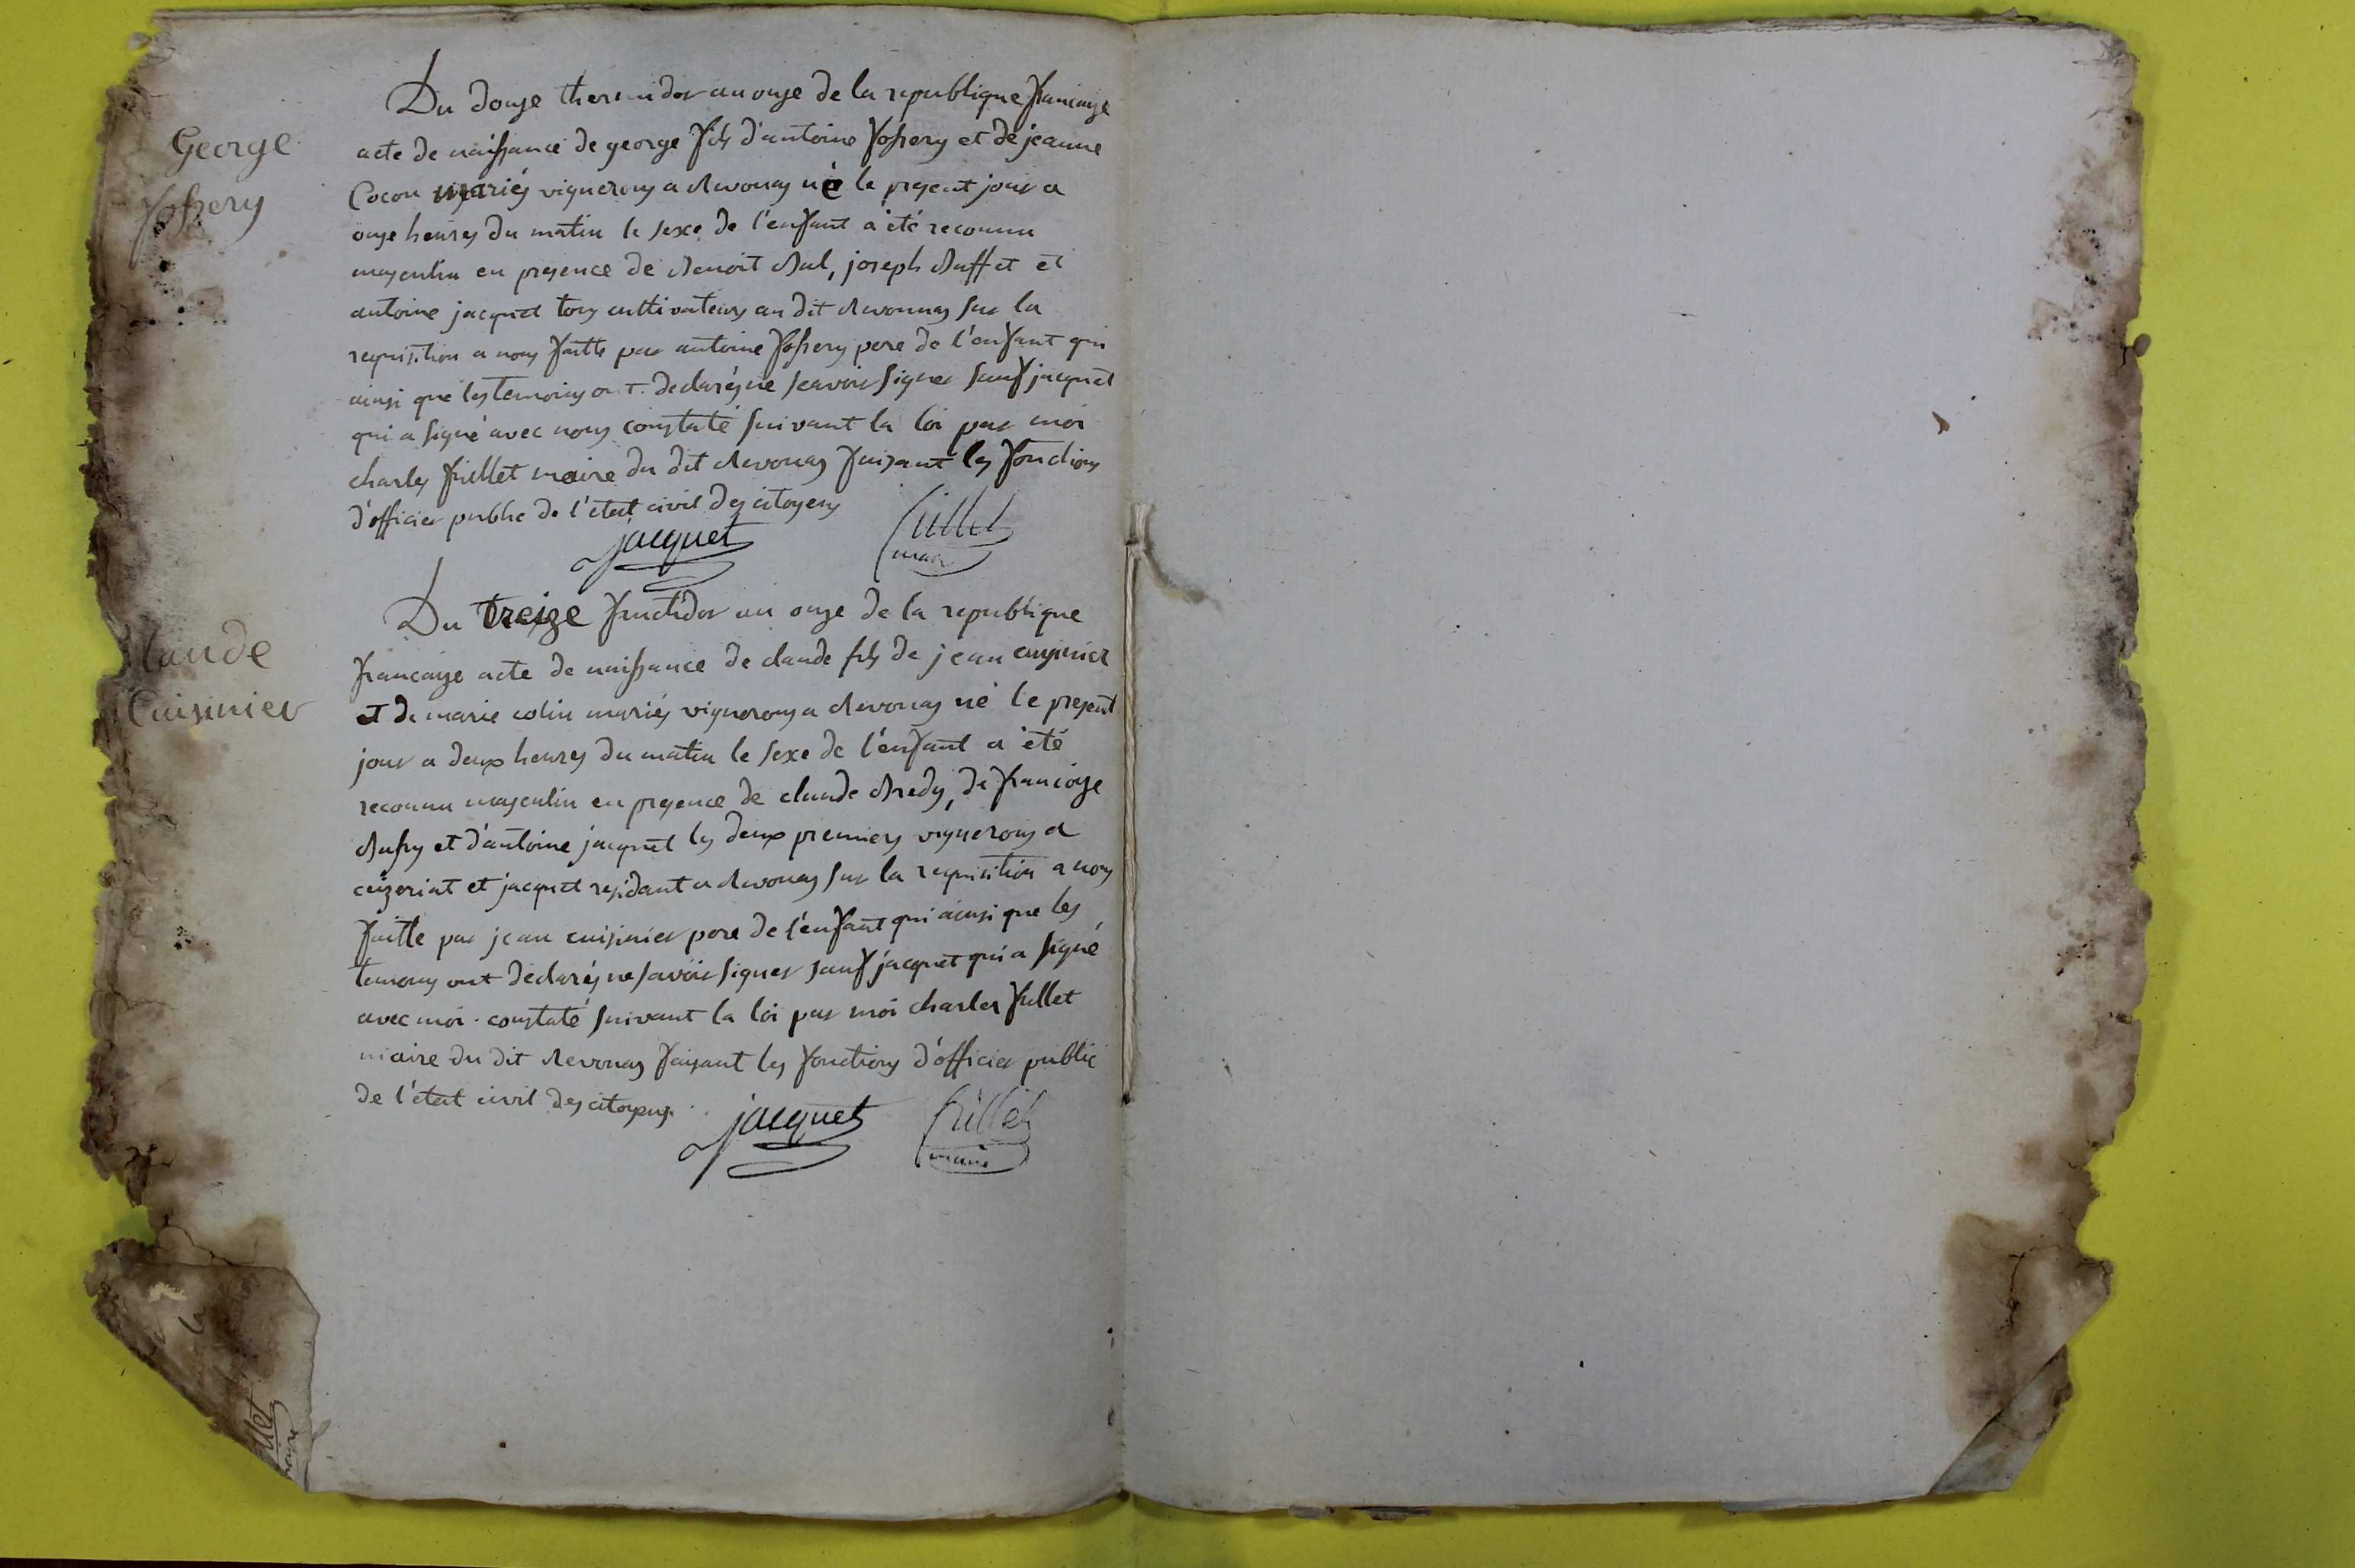 George
fossery
Du douze thermidor an onze de la republique francaise
acte de naissance de george fils d'antoine fossery et de jeanne
Cocon mariés vignerons a Revonas né le present jour a
onze heures du matin le sexe de l'enfant a été reconnu
masculin en presence de Benoit Bal, joseph Buffet et
antoine jacquet tous cultivateurs au dit Revonnas sur la
requisition a nous faitte par antoine fossery pere de l'enfant qui
ainsi que les temoins ont declarés ne scavoir signer sauf jacquet
qui a signé avec nous constaté suivant la loi par moi
charles fillet maire du dit Revonas faisant les fonctions
d'officier public de l'état civil des citoyens
jacquet fillet
maire
Claude
Cuisinier
Du treize fructidor an onze de la republique
francaise acte de naissance de claude fils de jean cuisinier
et de marie colin mariés vignerons a Revonas né le present
jour a deux heures du matin le sexe de l'enfant a été
reconnu masculin en presence de claude Bredy, de francoise
et d'antoine jacquet les deux premiers vignerons a
ceizeriat et jacquet residant a Revonas sur la requisition a nous
faitte par jean cuisinier pere de l'enfant qui ainsi que les
temoins ont declarés ne savoir signer sauf jacquet qui a signé
avec moi. constaté suivant la loi par moi charles fillet
maire du dit Revonas faisant les fonctions d'officier public
de l'état civil des citoyens.
jacquet fillet
maire